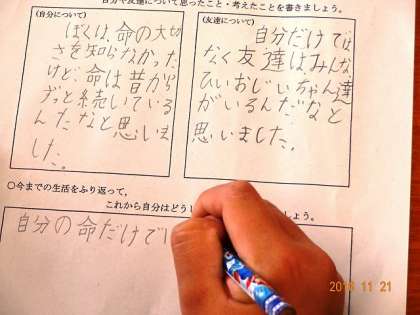 自分や友達について思ったこと・考えたことを書きましょう。
(自分について)
ぼくは、命の大切
さを知らなかった
けど、命は昔から
ずっと続いている
んだなと思いま
した。
(友達について)
自分だけでは
なく友達はみんな
ひいおじいちゃん達
がいるんだなと
思いました。
○今までの生活をふり返って、
これから自分はどうし
しょう。
自分の命だけで
2018 11 21